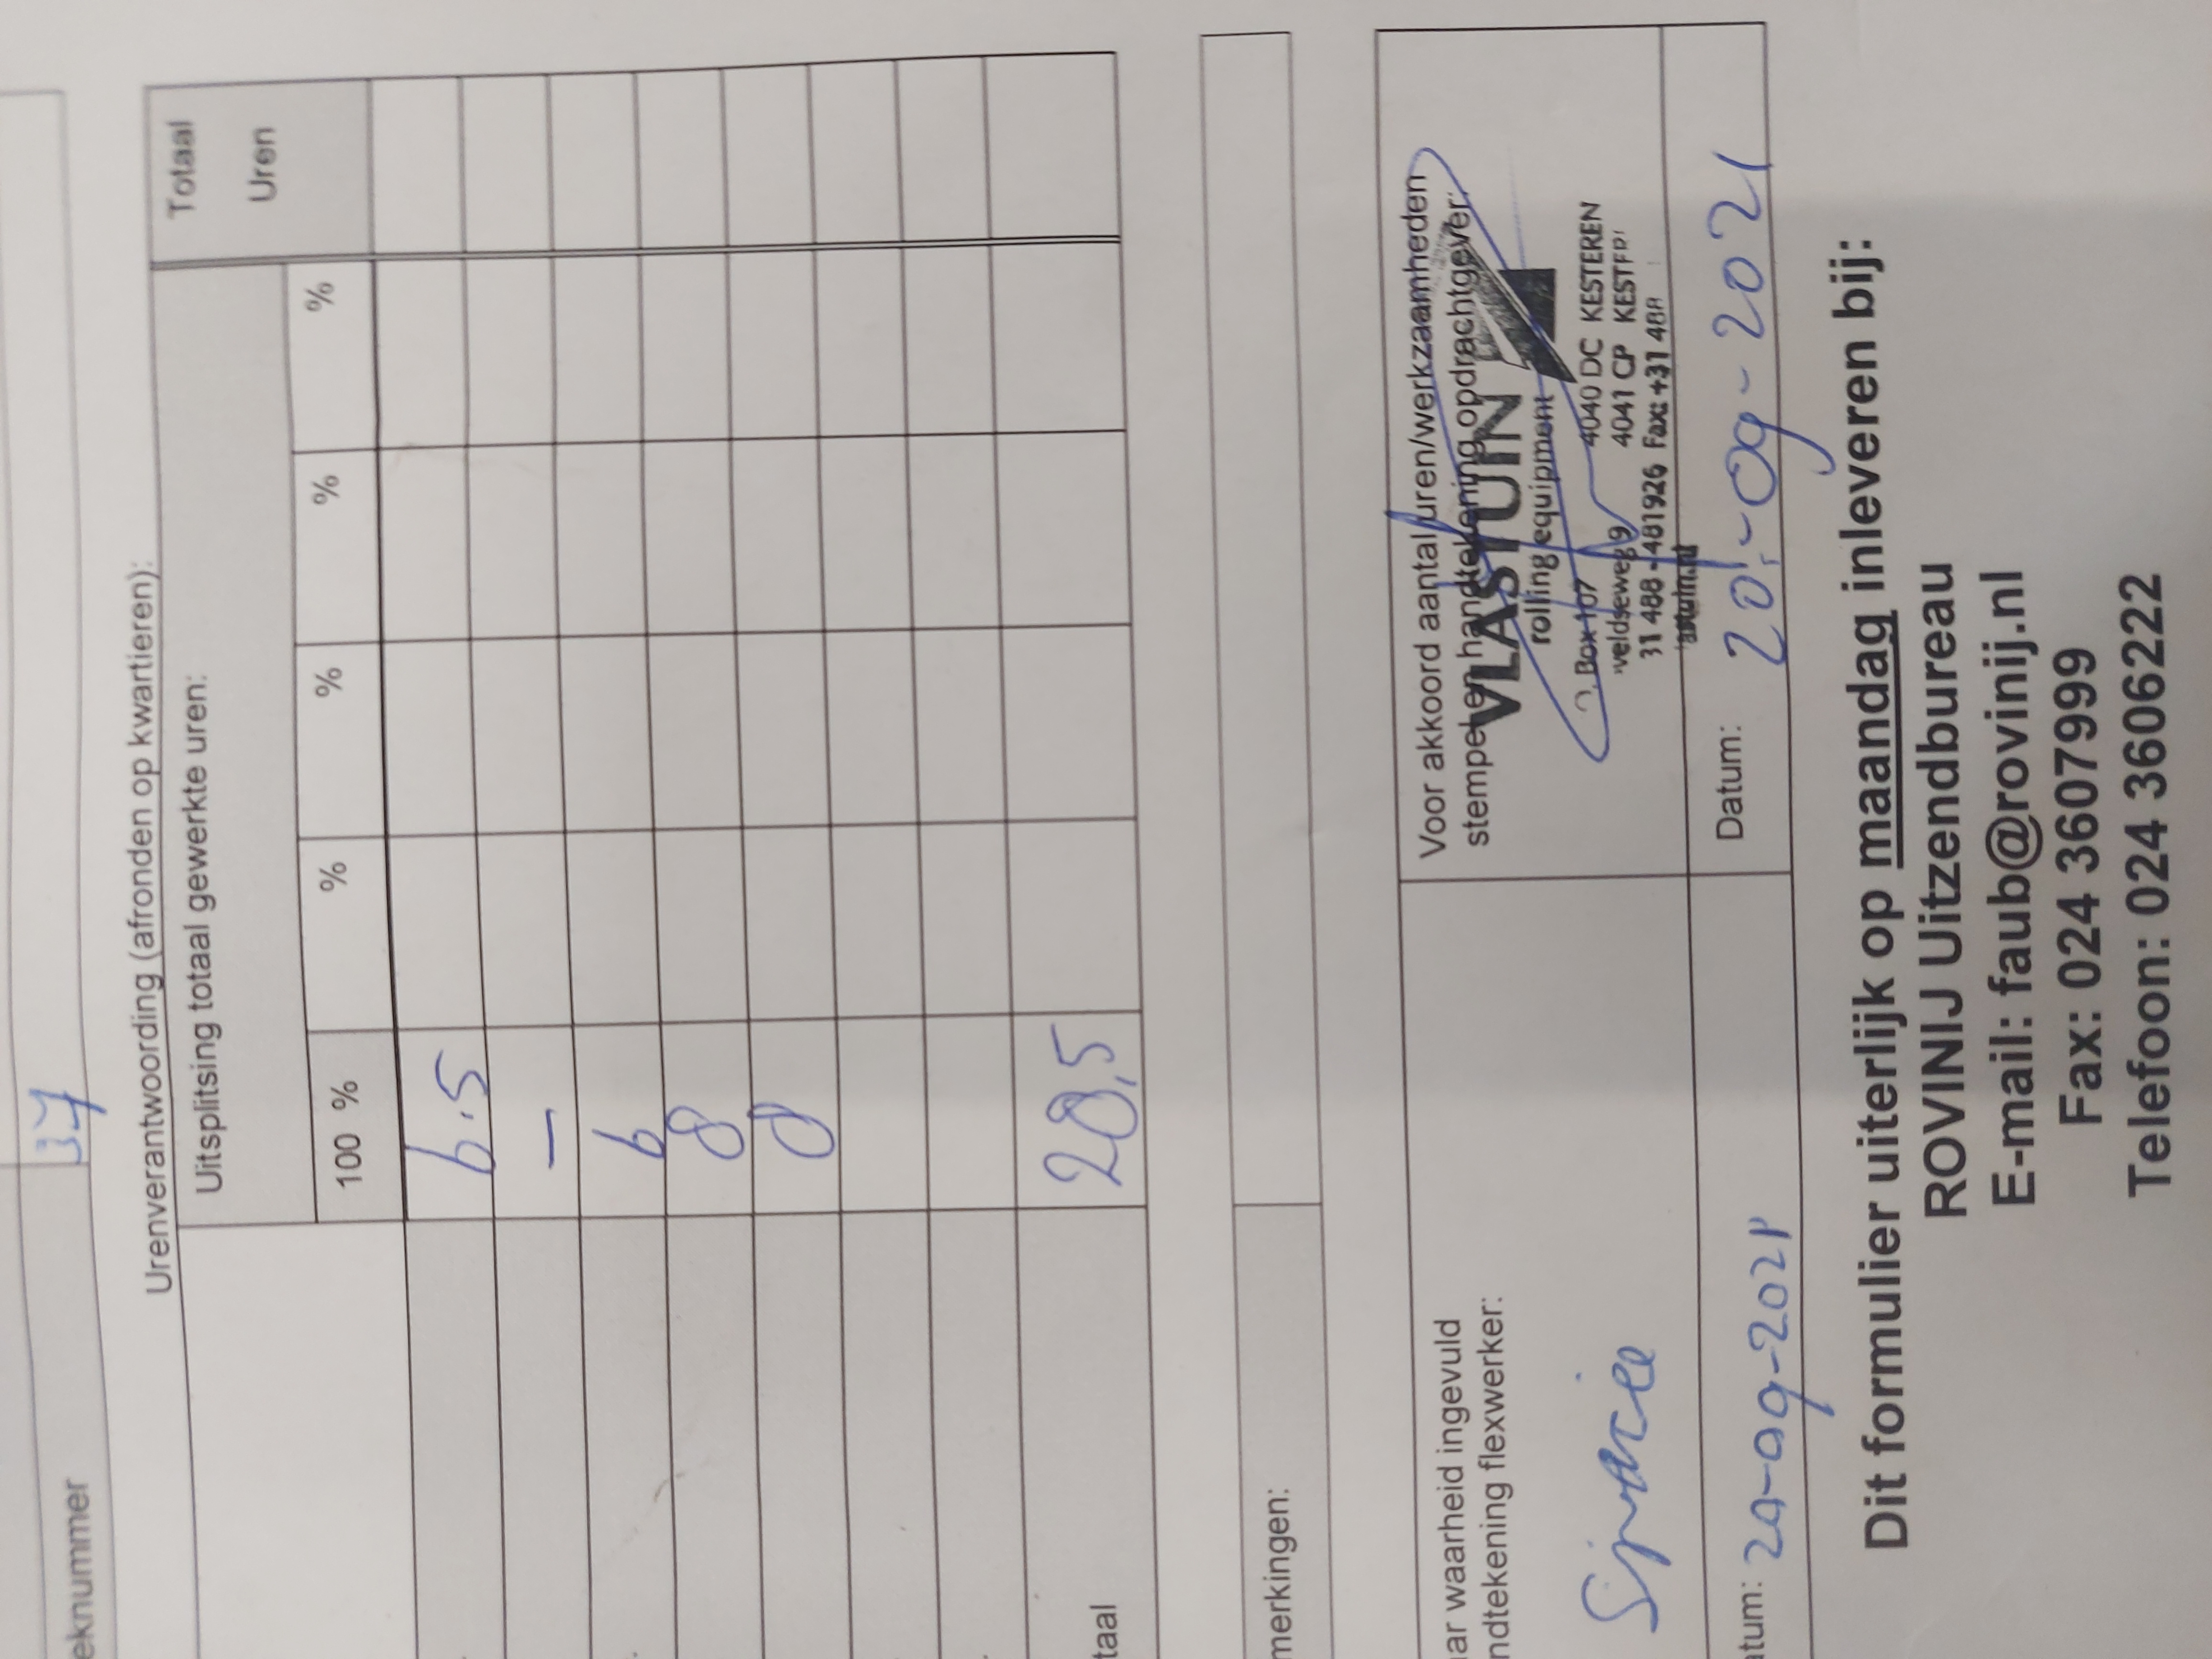 eknummer 37
Urenverantwoording (afronden op kwartieren):
Uitsplitsing totaal gewerkte uren: Totaal
Uren
100 % % % % %
6.5
—
6
8
8
taal 28,5
merkingen:
ar waarheid ingevuld
ndtekening flexwerker:
Voor akkoord aantal uren/werkzaamheden
stempel en handtekening opdrachtgever:
VLASTUIN
rolling equipment
. Box 107 4040 DC KESTEREN
veldseweg 9 4041 CP KESTER
31 488 - 481926 Fax: +31 488
astuin.nl
atum: 20-09-2021
Datum: 20-09-2021
Dit formulier uiterlijk op maandag inleveren bij:
ROVINIJ Uitzendbureau
E-mail: faub@rovinij.nl
Fax: 024 3607999
Telefoon: 024 3606222